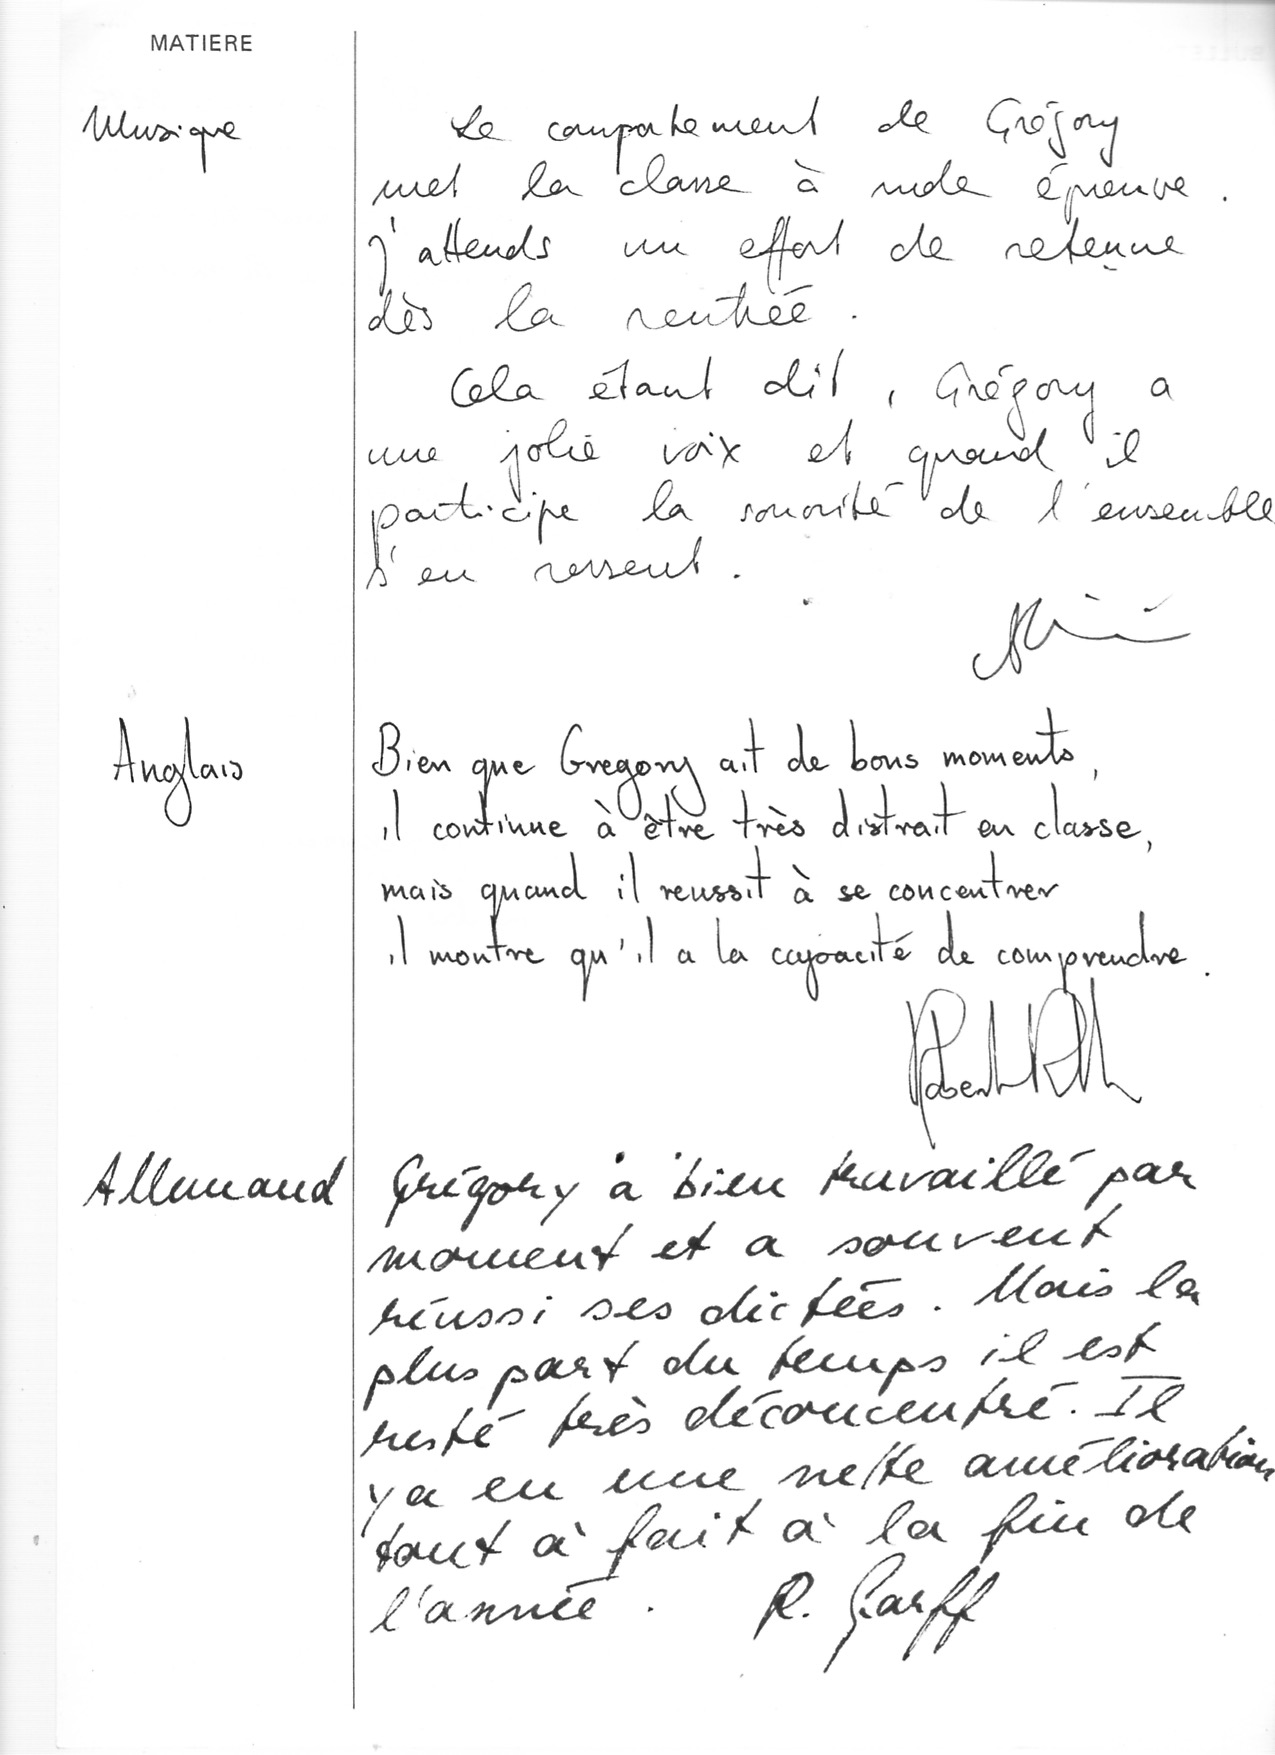 MATIERE
Musique
Le comportement de Grégory
met la classe à rude épreuve.
J'attends un effort de retenue
dès la rentrée.
Cela étant dit, Grégory a
une jolie voix et quand il
participe la sonorité de l'ensemble
s'en ressent.
Anglais
Bien que Gregory ait de bons moments,
il continue à être très distrait en classe,
mais quand il reussit à se concentrer
il montre qu'il a la capacité de comprendre.
Robert
Allemand
Grégory a bien travaillé par
moment et a souvent
réussi ses dictées. Mais la
plus part du temps il est
resté très déconcentré. Il
y a eu une nette amélioration
tout à fait à la fin de
l'année. R. Garff